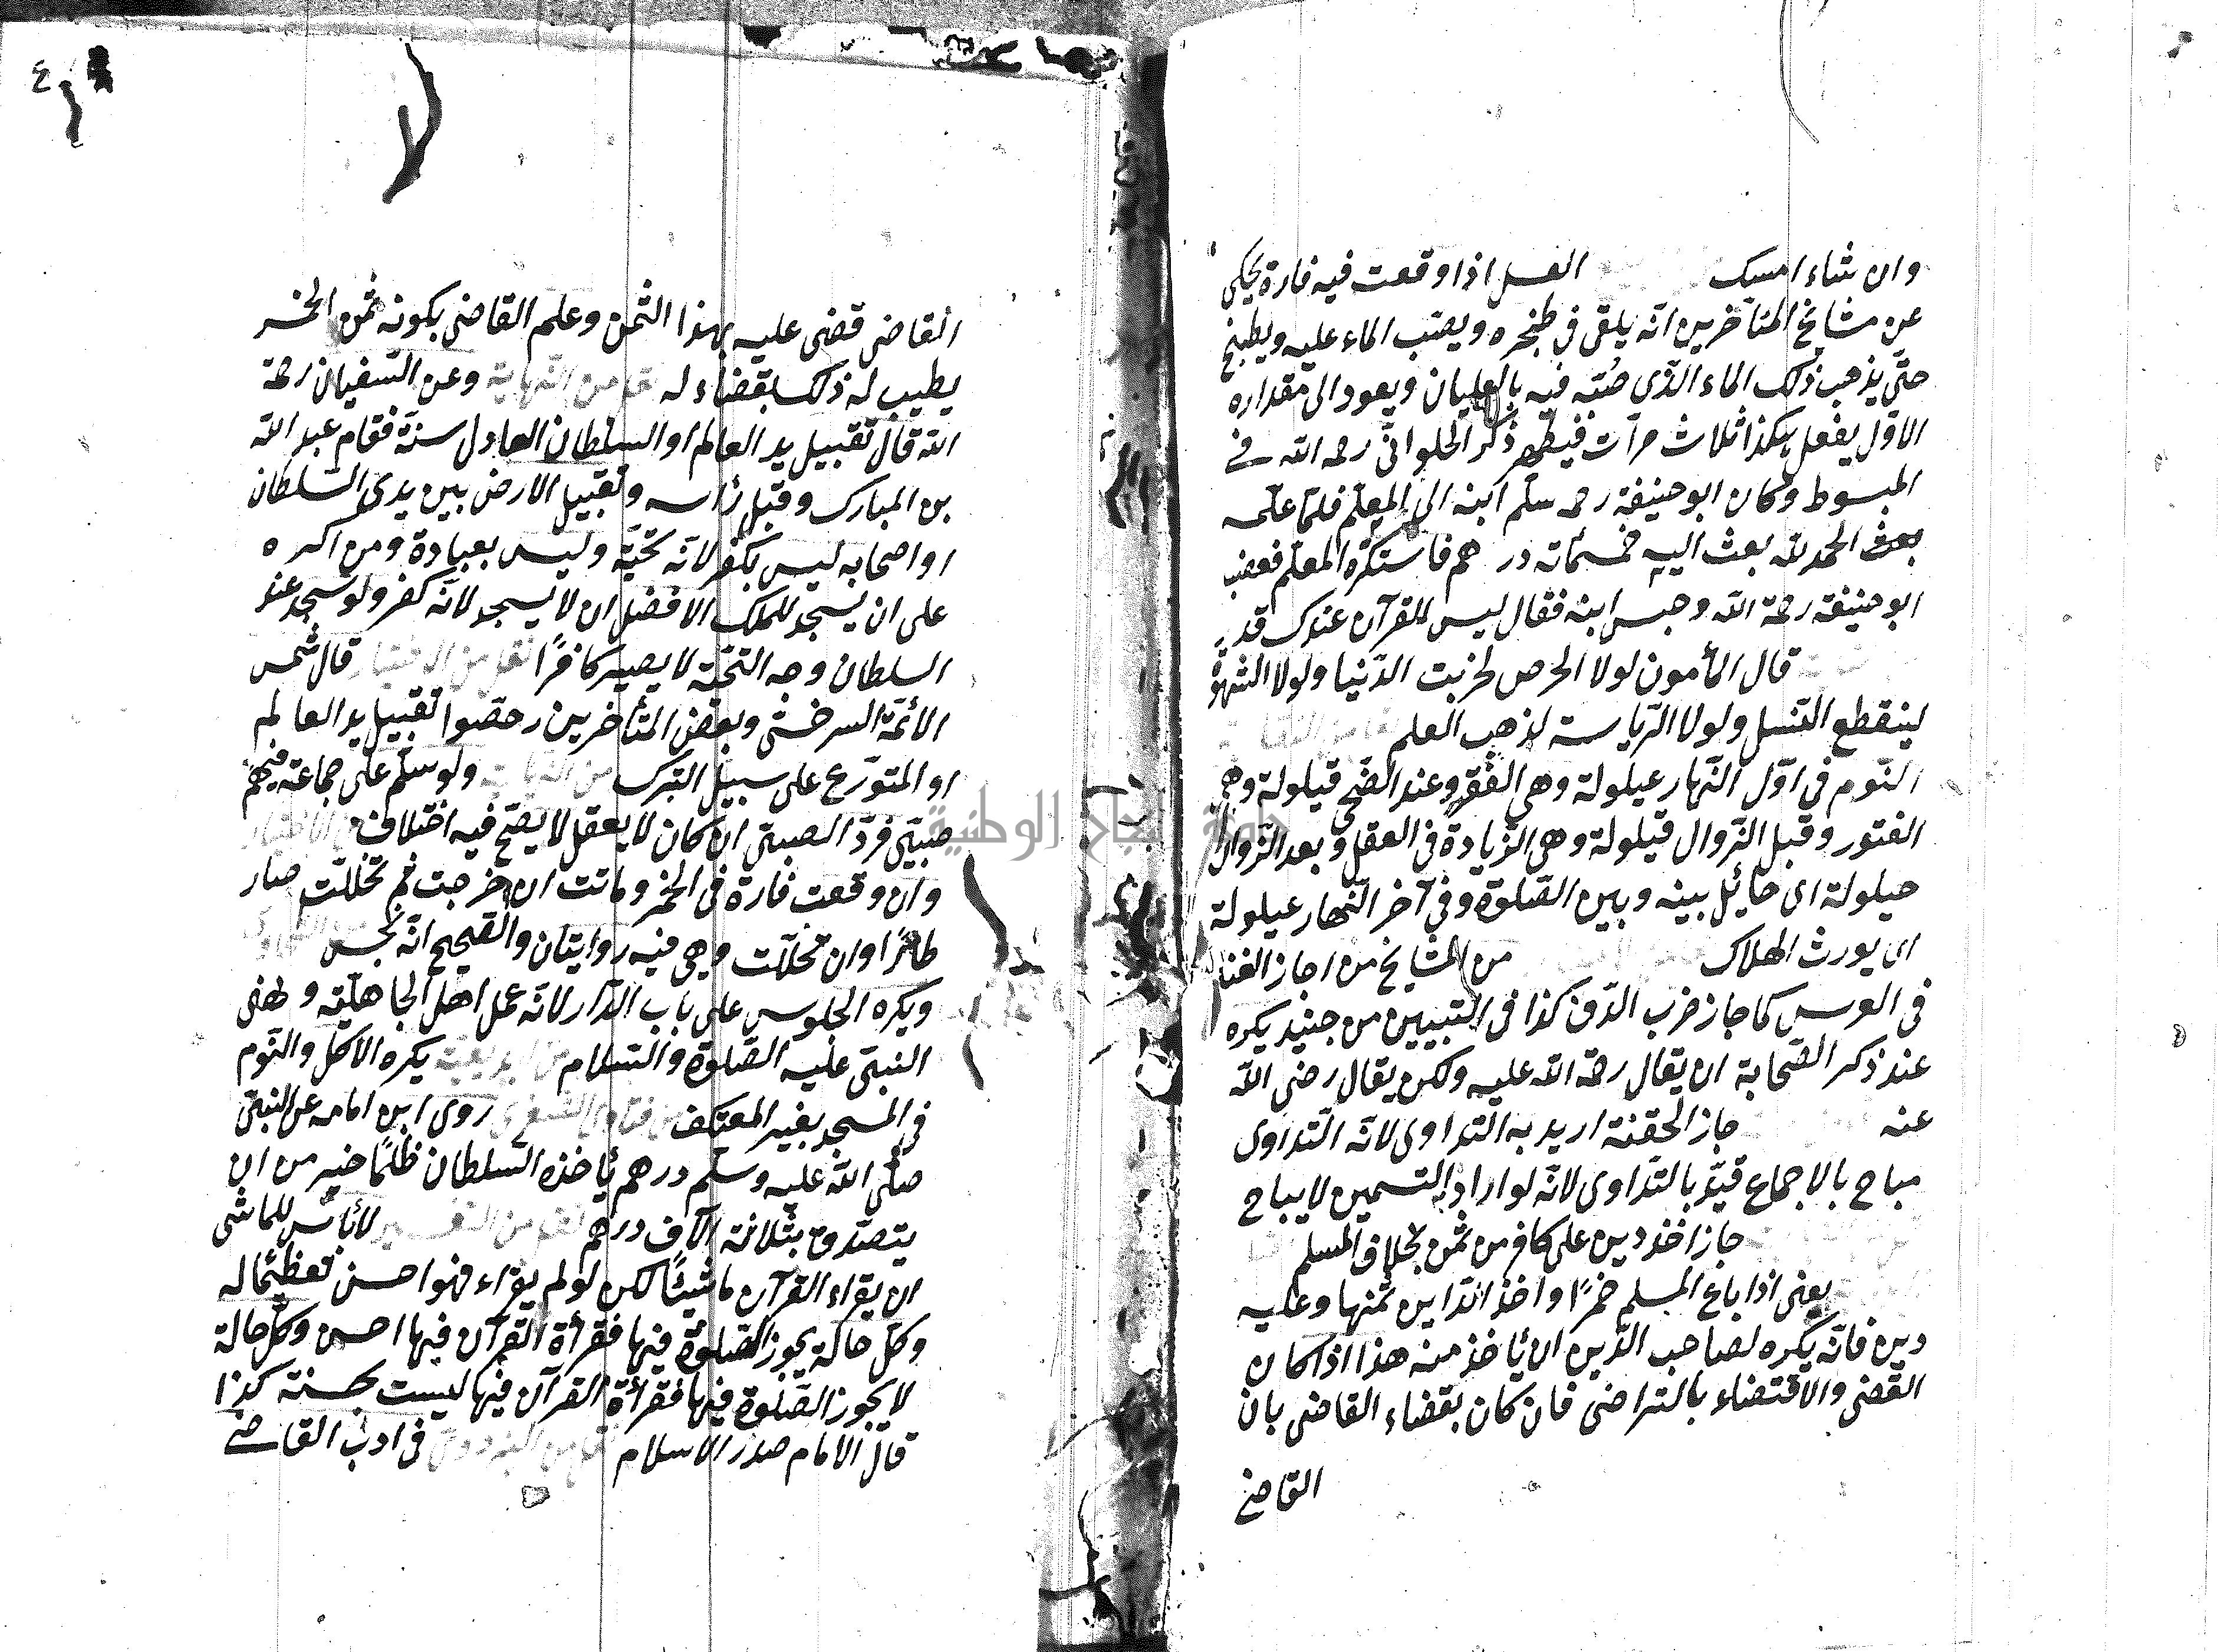 وان شاء امسك العسل اذا وقعت فيه فارة يحكى
عن مشايخ المتأخرين انّه يلقى فى طنجره ويصب الماء عليه ويطبخ
حتّى يذهب ذلك الماء الّذى صُبّه فيه بالغليان ويعود الى مقداره
الاوّل يفعل هكذا ثلاث مرآت فيطهر ذكر الحلوانىّ رحمه الله فى
المبسوط وكان ابو حنيفة رحمه سلّم ابنه الى المعلّم فلمّا علّمه
بعث الحمد لله بعث اليه خمسمائة درهم فاستكره المعلّم فغضب
ابو حنيفة رحمة الله وحبس ابنه فقال ليس للقرآن عندك قدر
قال المأمون لولا الحرص لخربت الدّنيا ولولا الشهوة
لينقطع النّسل ولولا الرّياسة لذهب العلم
النّوم فى اوّل النّهار عيلولة وهى الفقر وعند الضّحى فيلولة وهى
الفتور وقبل الزّوال قيلولة وهى الزّيادة فى العقل وبعد الزّوال
حيلولة اى حائل بينه وبين الصّلوة وفى آخر النّهار عيلولة
اى يورث الهلاك من المشايخ من اجاز الغنا
فى العرس كما جاز ضرب الدّف كذا فى التبيين من جنيد يكره
عند ذكر الصّحابة ان يقال رحمة الله عليه ولكن يقال رضى الله
عنه جاز الحقنة اريد به التداوى لانّه التّداوى
مباح بالاجماع قيّد بالتّداوى لانّه لو اراد به التسمين لا يباح
جاز اخذ دين على كافر من ثمن بخلاف المسلم
يعنى اذا باع المسلم خمرًا واخذ الدّاين ثمنها وعليه
دين فانّه يكره لصاحب الدّين ان يأخذ منه هذا اذا كان
القضى والاقتضاء بالتراضى فان كان بقضاء القاضى بان
القاضى
٤
القاضى قضى عليه بهذا الثّمن وعلم القاضى بكونه ثمن الخمر
يطيب له ذلك بقضاء له من النّهاية وعن السّفيان رحمة
الله قال تقبيل يد العالم او السلطان العادل سنّة فقام عبد الله
بن المبارك وقبل رأسه وتقبيل الارض بين يدى السلطان
او اصحابه ليس بكفر لانّه تحيّة وليس بعبادة ومن اكره
على ان يسجد للملك الافضل ان لا يسجد لانّه كفر ولو سجد عند
السلطان وجه التحيّة لا يصير كافرًا قال شمس
الائمّة السرخسى وبعض المتأخرين رخصوا تقبيل يد العالم
او المتورّع على سبيل التبرك ولو سلّم على جماعة فيهم
صبيّى فردّ الصبىّ ان كان لا يعقل لا يصحّ فيه اختلاف
وان وقعت فارة فى الخمر وماتت ان خرجت ثم تخللت صار
طاهرًا وان تخللت وهى فيه روايتان والصّحيح انّه نجس
ويكره الجلوس على باب الدّار لانّه عمل اهل الجاهليّة ونهى
النبىّ عليه الصّلوة والسّلام يكره الاكل والنّوم
فى المسجد بغير المعتكف روى ابن امامه عن النبىّ
صلّى الله عليه وسلّم درهم يأخذه السّلطان ظلمًا خير من ان
يتصدّق بثلاثة آلاف درهم لا بأس للماشى
ان يقراء القرآن ماشيًا لكن لو لم يقراء فهو احسن تعظيمًا له
وكلّ حالة يجوز الصّلوة فيها فقرأة القرآن فيها احسن وكلّ حالة
لا يجوز الصّلوة فيها فقرأة القرآن فيها ليست بحسنة كذا
قال الامام صدر الاسلام فى ادب القاضى
جامعة النجاح الوطنية